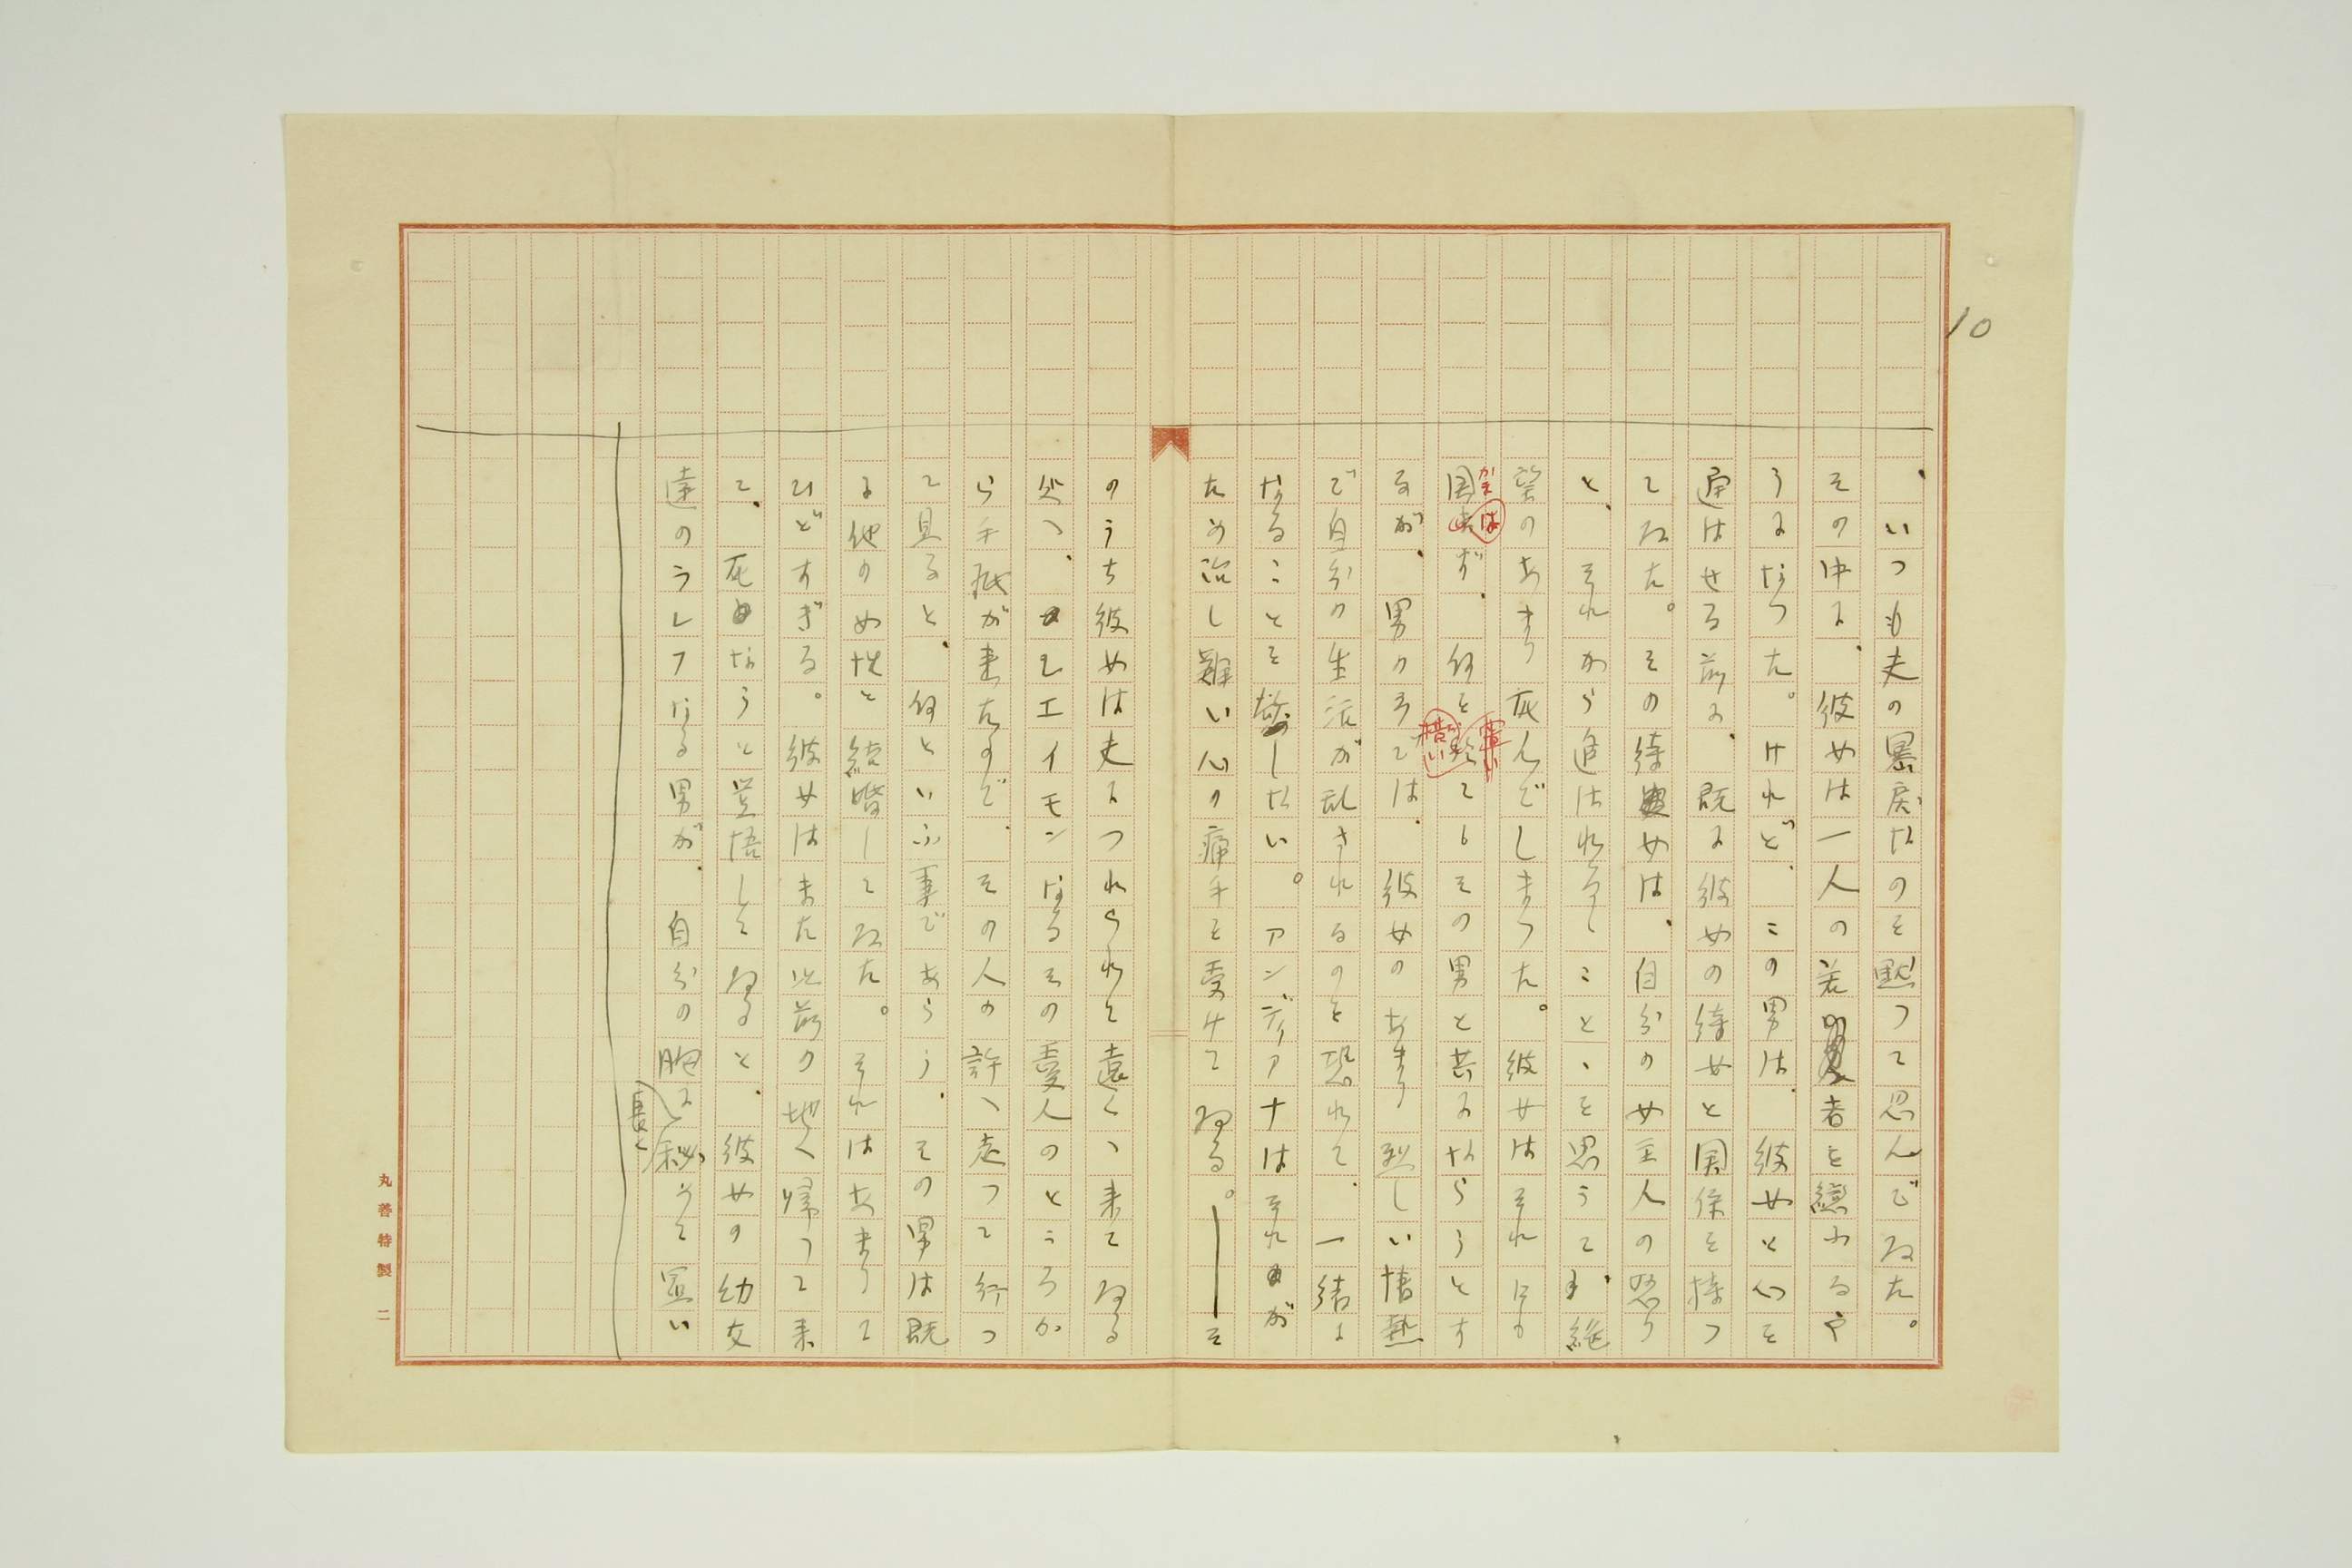 10
、いつも夫の暴戻なのを黙つて忍んでゐた。
その中に、彼女は一人の若者を戀ふるや
うになつた。けれど、この男は、彼女と心を
通はせる前に、既に彼女の侍女と関係を持つ
てゐた。その侍女は、自分の女主人の怒り
と、それから追はれることゝを思うて、絶
望のあまり死んでしまつた。彼女はそれにも
かまはず、何を措いてもその男と共にならうとす
るが、男の方では、彼女のあまり烈しい情熱
で自分の生活が乱されるのを恐れて、一緒に
なることを敢へてしない。アンディアナはそれが
ため治し難い心の痛手を受けてゐる。――そ
のうち彼女は夫につれられて遠くへ来てゐる
処へ、レエイモンなるその愛人のところか
ら手紙が来たので、その人の許へ走つて行つ
て見ると、何といふ事であらう、その男は既
に他の女性と結婚してゐた。それはあまりに
ひどすぎる。彼女はまた以前の地へ帰つて来
て、死なうと覚悟してゐると、彼女の幼友
達のラルフなる男が、自分の胸に
長く
秘めて置い
丸善特製 二